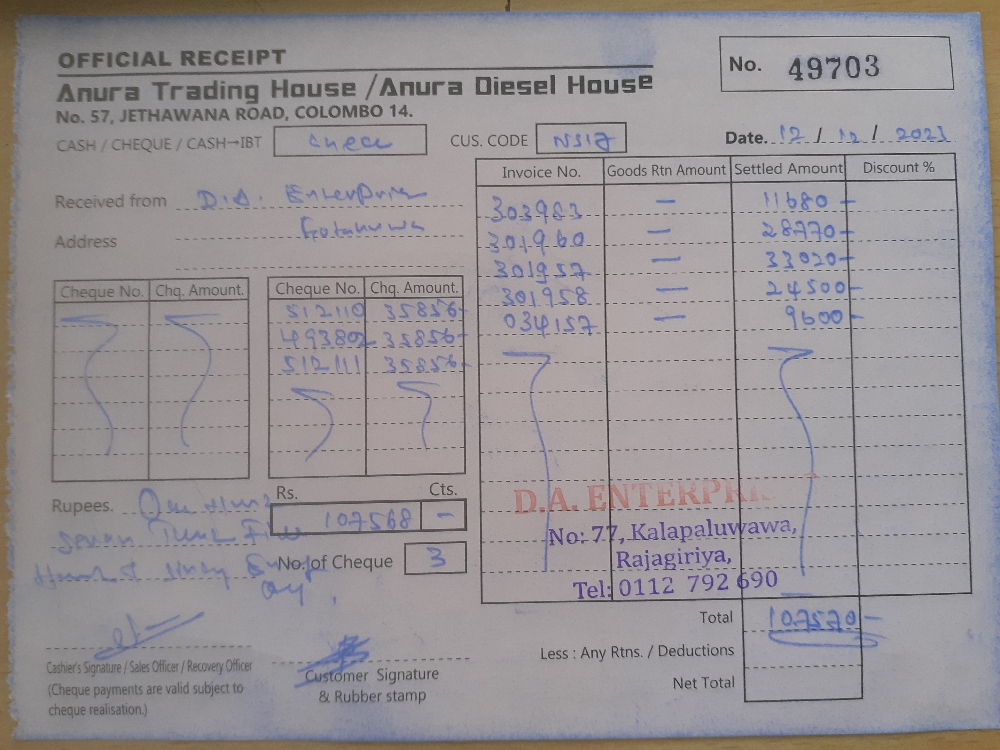 OFFICIAL RECEIPT
No. 49703
Anura Trading House / Anura Diesel House
No. 57, JETHAWANA ROAD, COLOMBO 14.
CASH / CHEQUE / CASH→IBT
CUS. CODE
Date. 12 / 12 / 2023
Invoice No. Goods Rtn Amount Settled Amount Discount %
Received from D.A. Enterprise
Address
303983 — 11680 —
301960 — 28770 —
301957 — 33020 —
301958 — 24500 —
034157 — 9600 —
Cheque No. Chq. Amount.
Cheque No. Chq. Amount.
512110 35856 -
493802 35856 -
512111 35856 -
Rupees. One
Seven Five
Rs. Cts.
107568 —
No. of Cheque 3
D.A. ENTERPRIS
No: 77, Kalapaluwawa,
Rajagiriya,
Tel: 0112 792 690
Total 107570 —
Less : Any Rtns. / Deductions
Net Total
Cashier's Signature / Sales Officer / Recovery Officer
(Cheque payments are valid subject to
cheque realisation.)
Customer Signature
& Rubber stamp